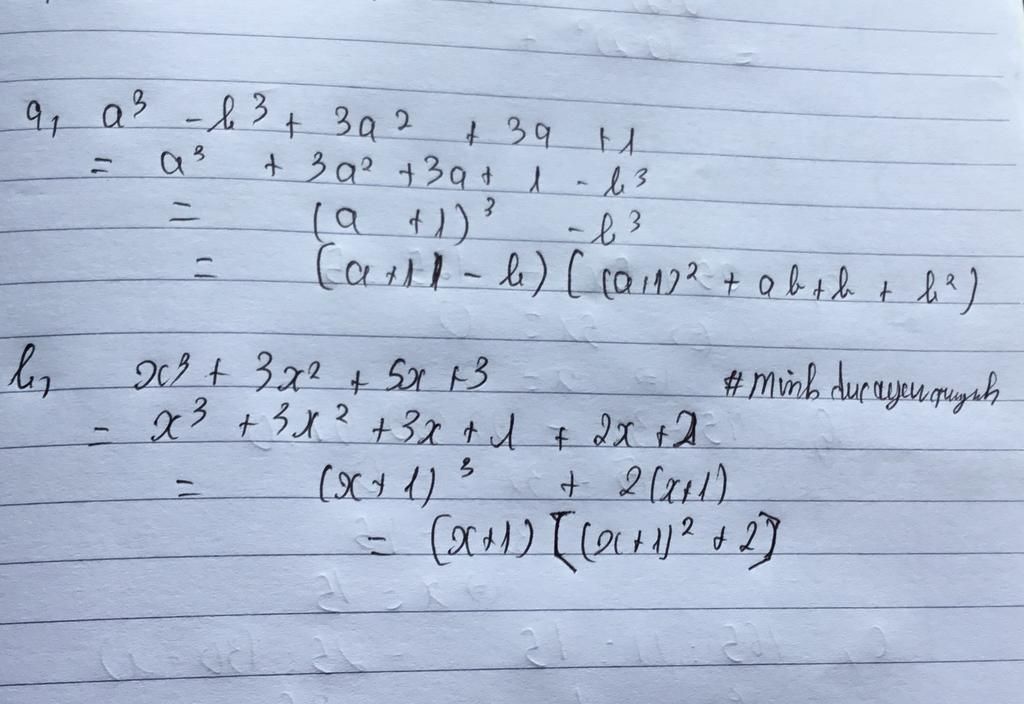 a, a³ - b³ + 3a² + 3a + 1
= a³ + 3a² + 3a + 1 - b³
= (a + 1)³ - b³
= (a + 1 - b) ( (a+1)² + ab + b + b²)
b, x³ + 3x² + 5x + 3
#minhducayeuquynh
= x³ + 3x² + 3x + 1 + 2x + 2
= (x + 1)³ + 2(x+1)
= (x+1) [(x+1)² + 2]